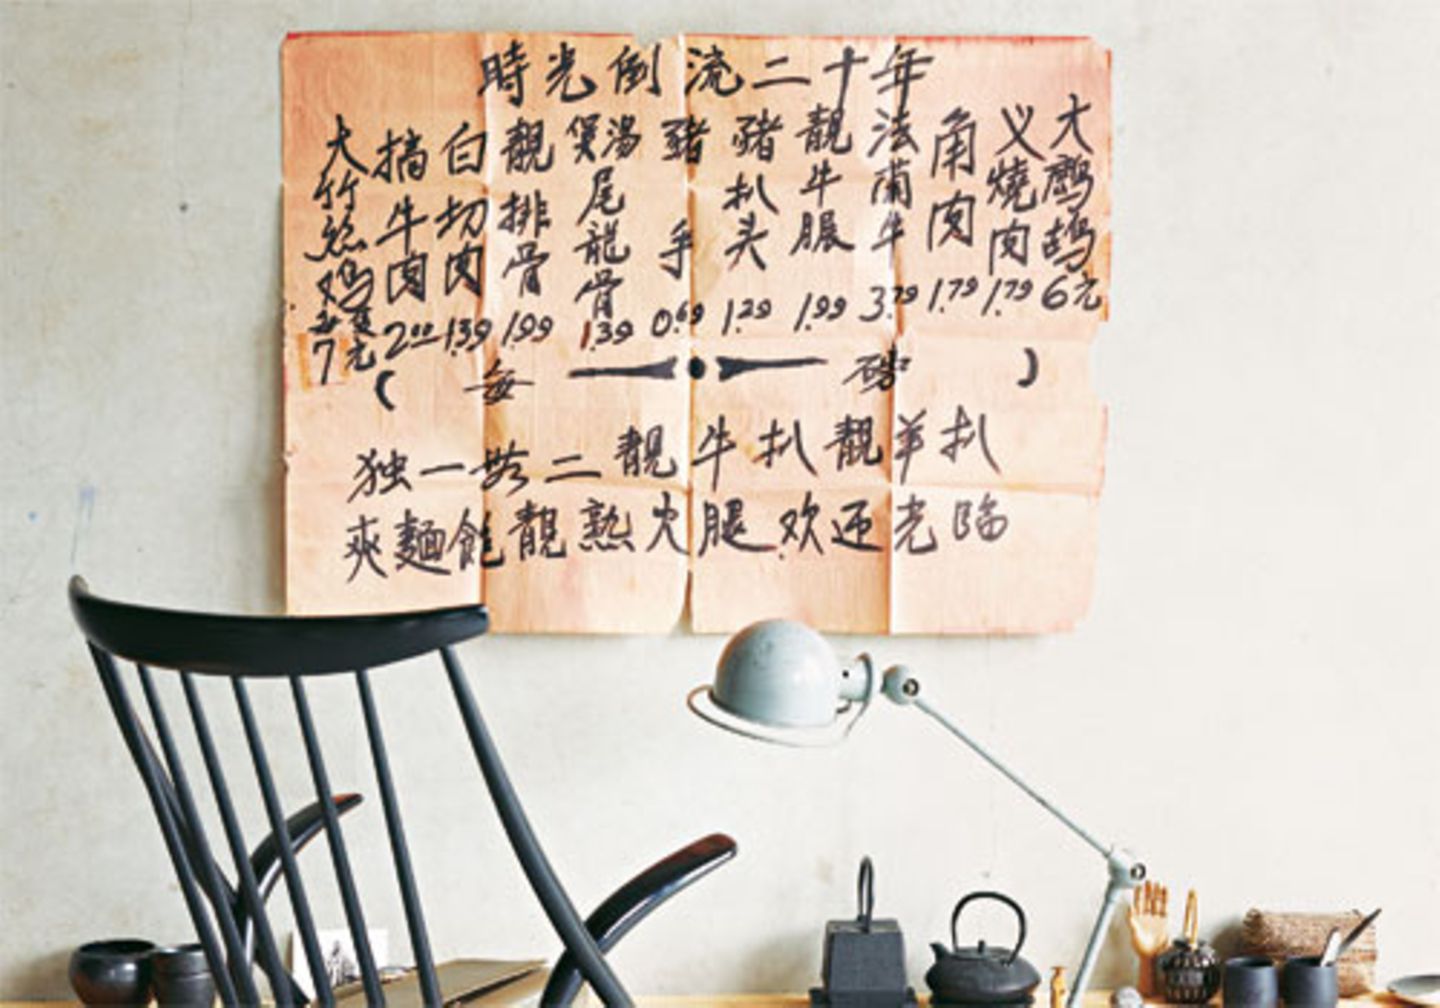 時光倒流二十年
大鹧鸪6元
义燒肉1.79
角肉1.79
法蘭牛3.79
靚牛脤1.99
豬扒头1.29
豬手0.69
煲湯尾龍骨1.39
靚排骨1.99
白切肉1.39
牛肉2.00
大竹絲鸡每隻7元
（每磅）
独一无二靚牛扒靚羊扒
爽麵飽靚熟火腿欢迎光臨